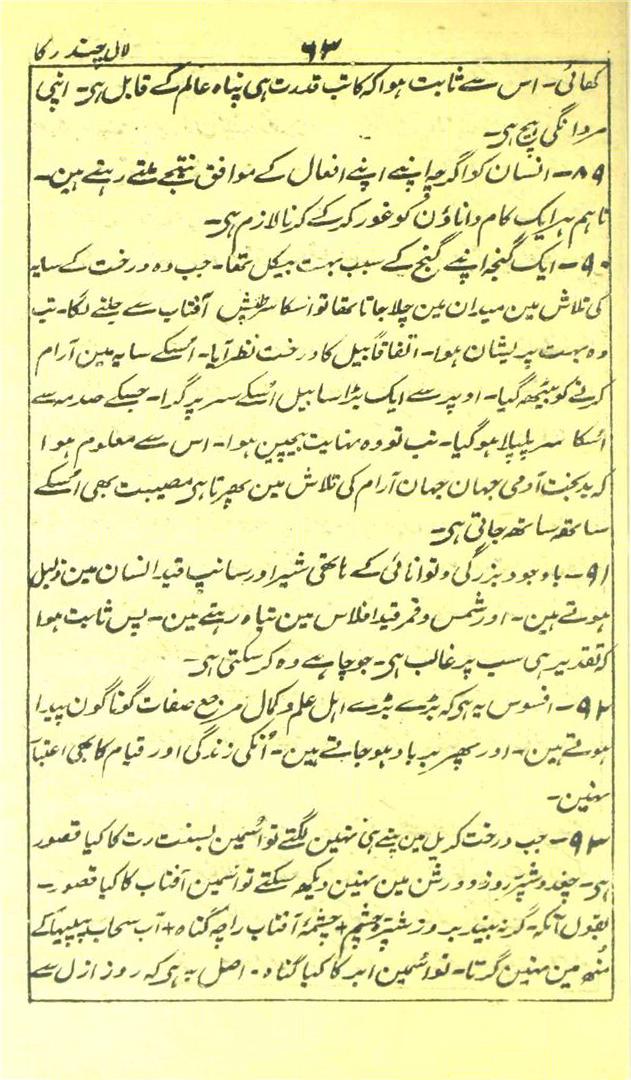 لال چندرکا ۶۳
کھائی۔ اس سے ثابت ہوا کہ کاتب قدرت ہی پناہ عالم کے قابل ہی۔ اپنی
مردانگی ہیچ ہی۔
۸۹۔ انسان کو اگرچہ اپنے اپنے افعال کے موافق نتیجے ملتے رہتے ہین۔
تاہم ہر ایک کام داناؤن کو غور کر کے کرنا لازم ہی۔
۹۰۔ ایک گنجہ اپنے گنج کے سبب بہت بیکل تھا۔ جب وہ درخت کے سایہ
کی تلاش مین میدان مین چلا جاتا تھا تو اسکا سر تپش آفتاب سے جلنے لگا۔ تب
وہ بہت پریشان ہوا۔ اتفاقاً بیل کا درخت نظر آیا۔ اُسکے سایہ مین آرام
کرنے کو بیٹھ گیا۔ اوپر سے ایک بڑا سا بیل اُسکے سر پر گرا۔ جسکے صدمہ سے
اُسکا سر پلپلا ہو گیا۔ تب تو وہ نہایت بیچین ہوا۔ اس سے معلوم ہوا
کہ بدبخت آدمی جہان جہان آرام کی تلاش مین پھرتا ہی مصیبت بھی اُسکے
ساتھ ساتھ جاتی ہی۔
۹۱۔ باوجود بزرگی و توانائی کے ہاتھی شیر اور سانپ قید انسان مین ذلیل
ہوتے ہین۔ اور شمس و قمر قید افلاس مین تباہ رہتے ہین۔ پس ثابت ہوا
کہ تقدیر ہی سب پر غالب ہی۔ جو چاہے وہ کر سکتی ہی۔
۹۲۔ افسوس یہ ہی کہ بڑے بڑے اہل علم و کمال مرجع صفات گوناگون پیدا
ہوتے ہین۔ اور پھر برباد ہو جاتے ہین۔ اُنکی زندگی اور قیام کا بھی اعتبار
نہین۔
۹۳۔ جب درخت کریل مین پتے ہی نہین لگتے تو اُسمین بسنت رت کا کیا قصور
ہی۔ چغد و شپر روز روشن مین نہین دیکھ سکتے تو اسمین آفتاب کا کیا قصور۔
بقول آنکہ۔ گر نہ بیند بروز شپرہ چشم + چشمۂ آفتاب را چہ گناہ + آب سحاب پپیہا کے
مُنھ مین نہین گرتا۔ تو اسمین ابر کا کیا گناہ۔ اصل یہ ہی کہ روز ازل سے